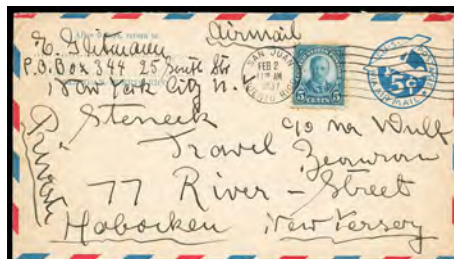 After 5 days, return to
Airmail
P.O. Box 344 25 South Str
New York City N.Y.
SAN JUAN
FEB 2
11 AM
1931
PUERTO RICO
5 CENTS 5
VIA AIR MAIL
5¢
Private
Steneck c/o Mr Wulf
Travel
77 River - Street
Hobocken New Yersey